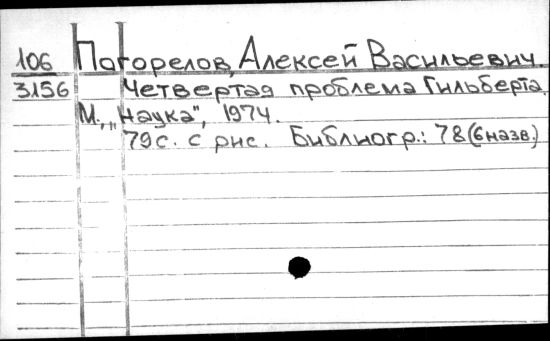 106 Погорелов, Алексей Васильевич.
3156 Четвертая проблема Гильберта.
М., "Наука", 1974.
79с. с рис. Библиогр.: 78 (6 назв.)